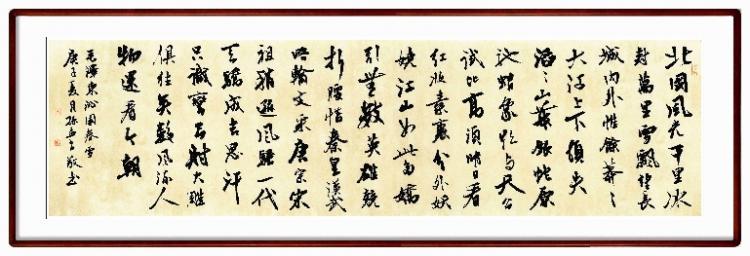 北國風光千里冰
封萬里雪飄望長
城内外惟餘莽〻
大河上下頓失
滔〻山舞銀蛇原
馳蜡象欲与天公
試比高須晴日看
红妝素裹分外妖
娆江山如此多嬌
引無數英雄競
折腰惜秦皇漢武
略輸文采唐宗宋
祖稍遜風騷一代
天驕成吉思汗
只識彎弓射大雕
俱往矣數風流人
物還看今朝
毛澤東沁園春雪
庚子夏月孫敬书